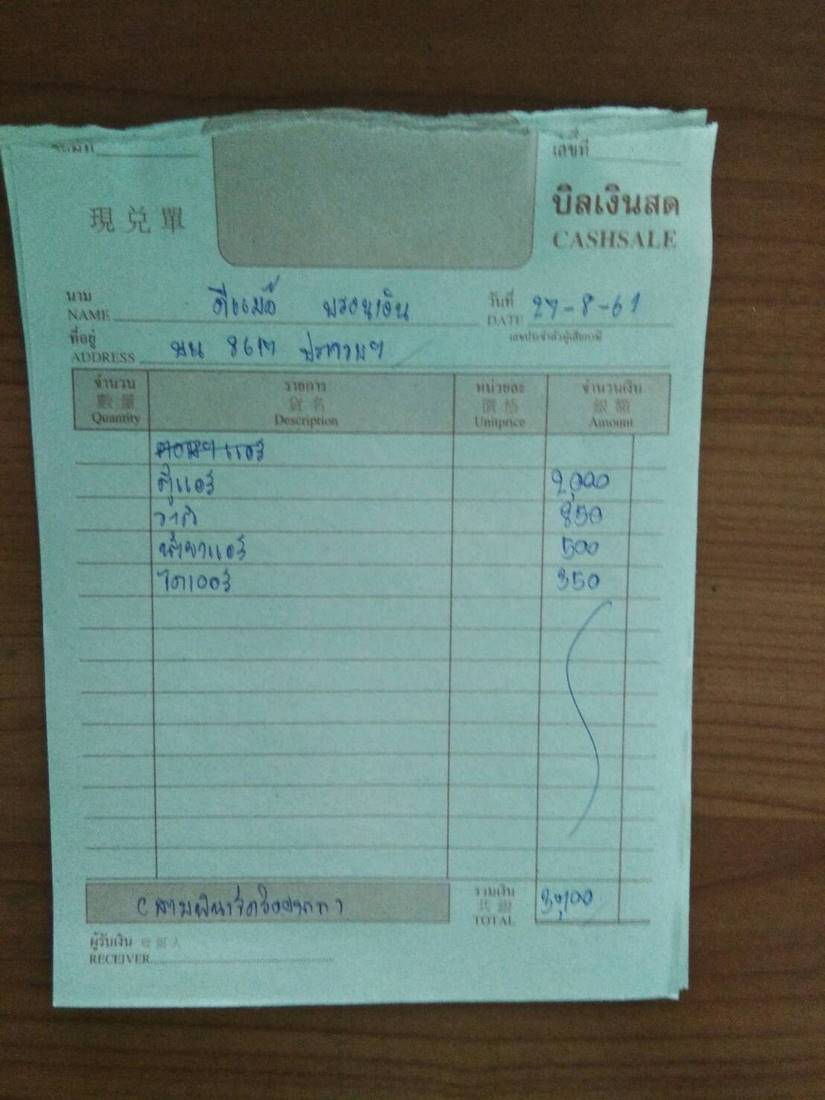 เลขที่
現兌單
บิลเงินสด
CASHSALE
นาม
NAME
วันที่ 27-8-61
DATE
ที่อยู่
ADDRESS บน 8617
เลขประจำตัวผู้เสียภาษี
จำนวน รายการ หน่วยละ จำนวนเงิน
數量 貨名 價格 銀額
Quantity Description Unitprice Amount
คอมฯแอร์
ตู้แอร์ 2,000
วาล์ว 850
น้ำยาแอร์ 500
ไดเออร์ 350
รวมเงิน
共銀
TOTAL 3,700
ผู้รับเงิน 收銀人
RECEIVER